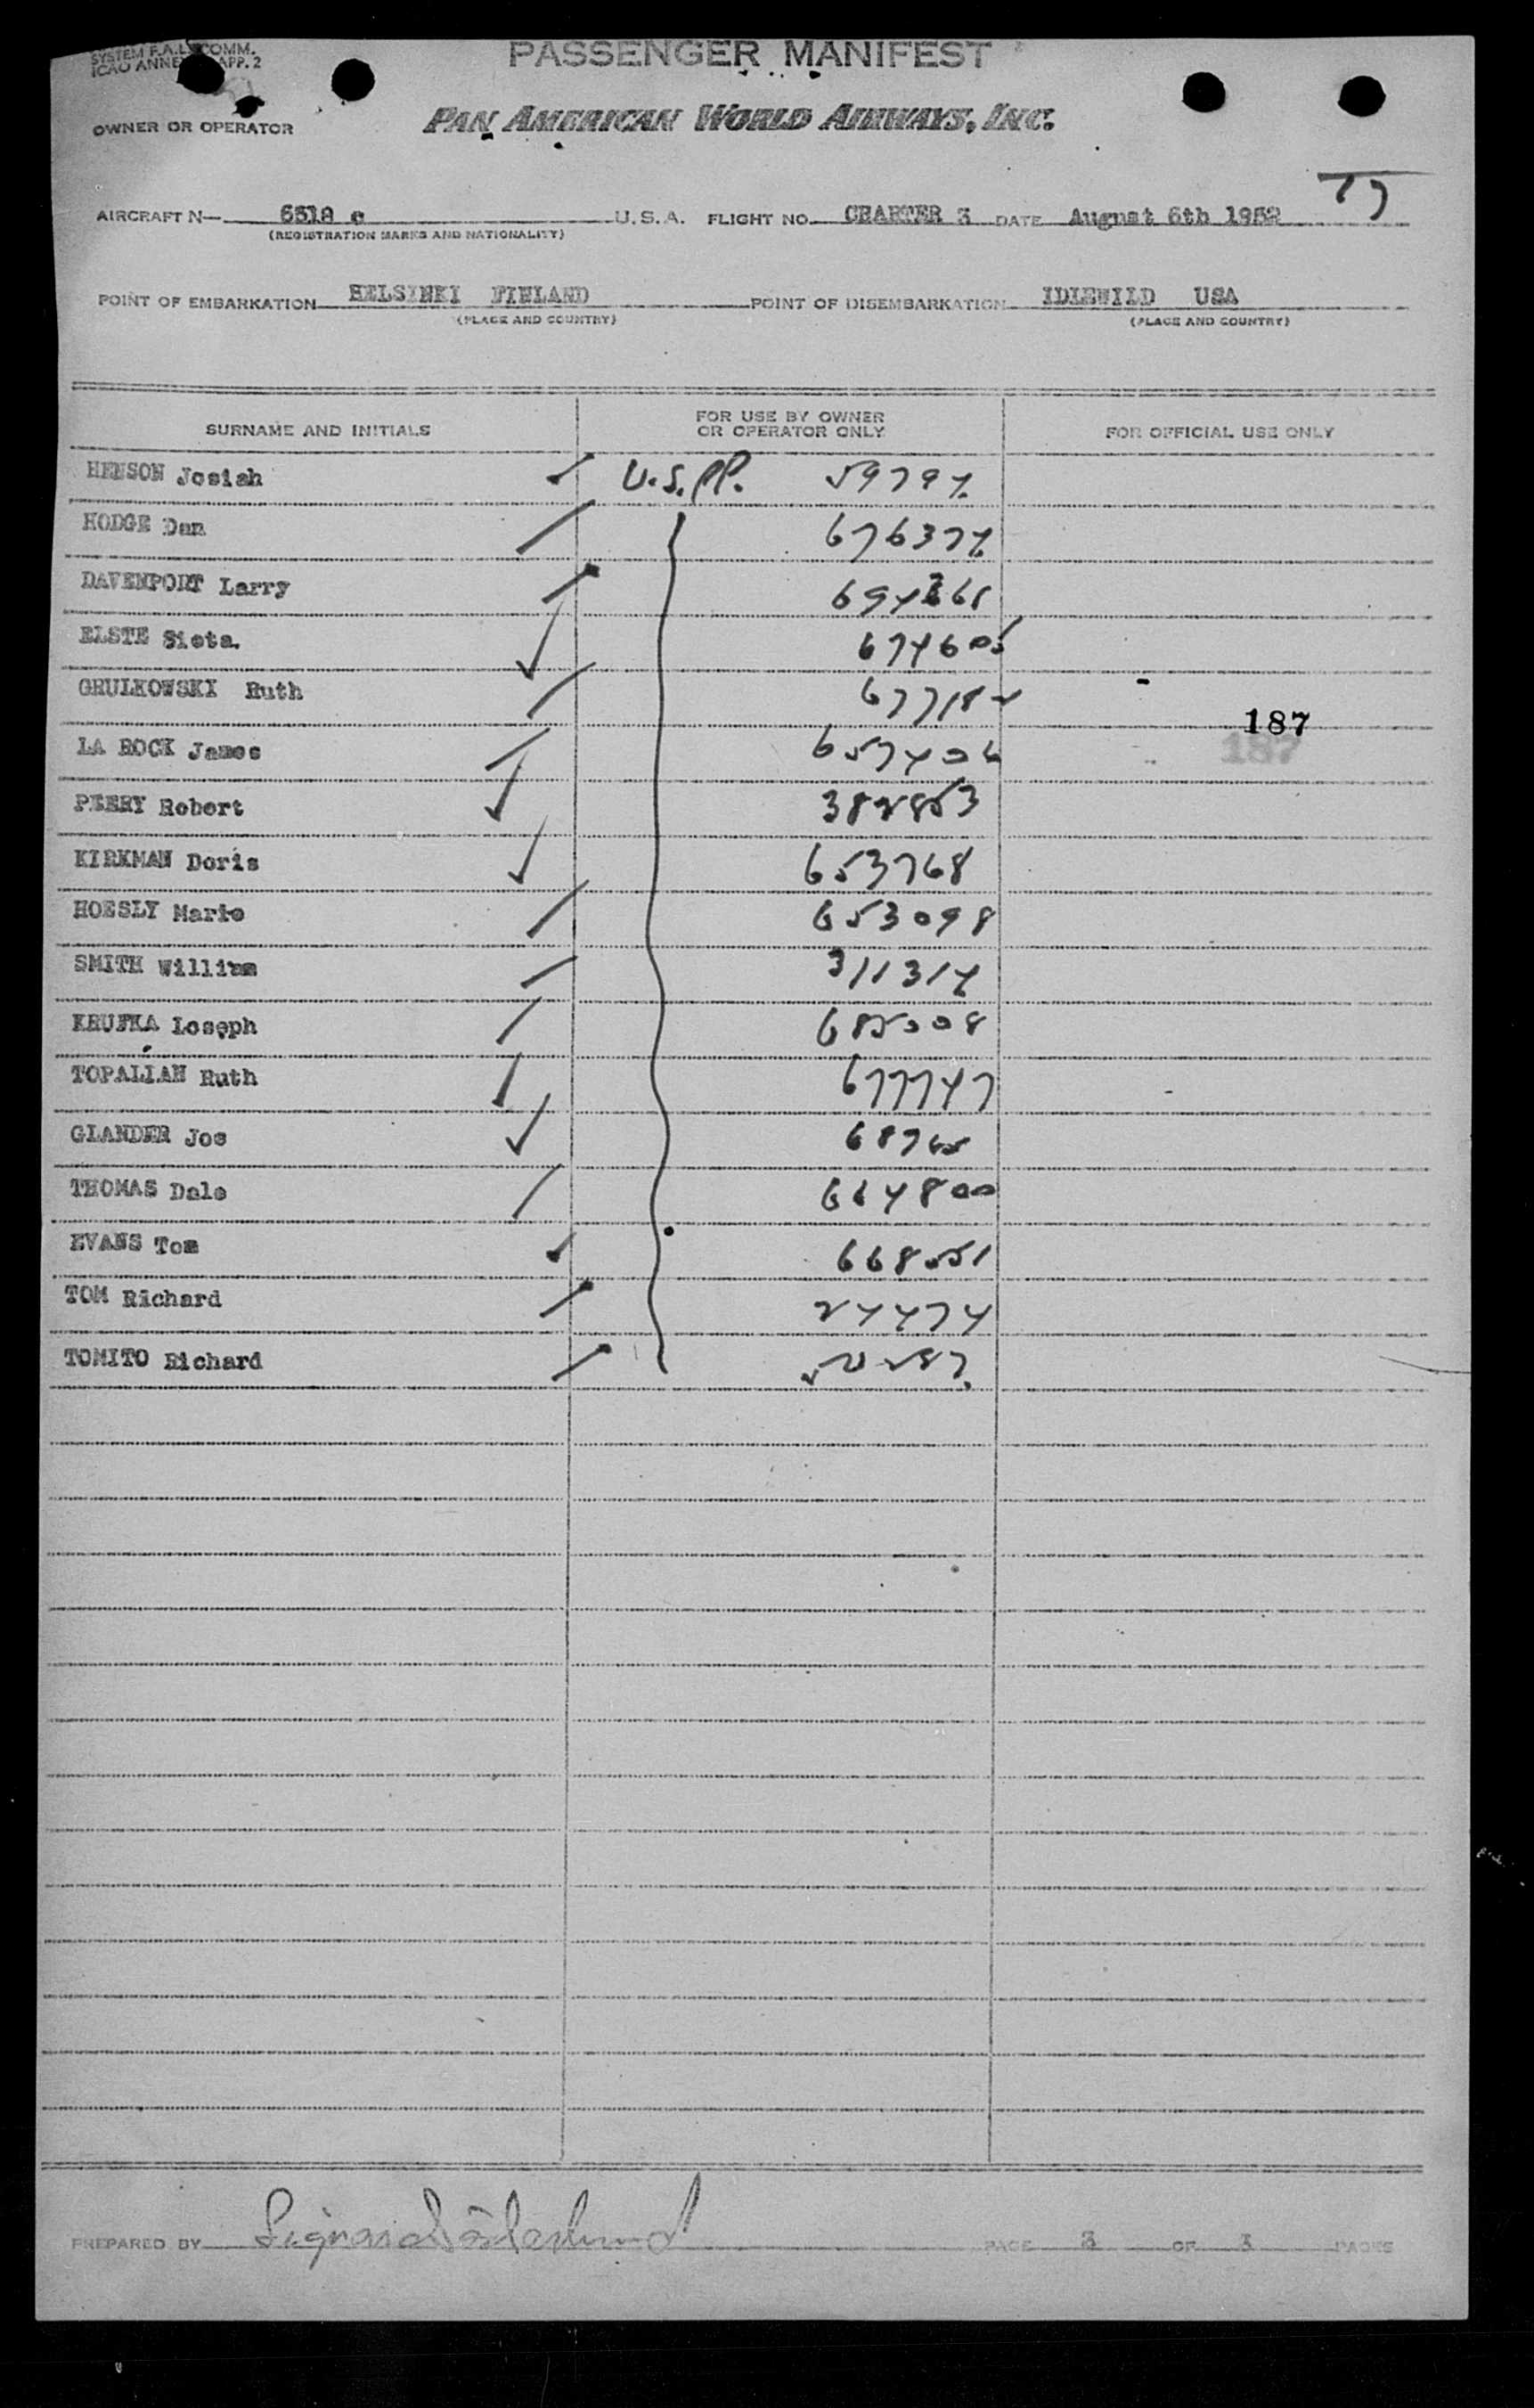 SYSTEM F.A.L. COMM.
ICAO ANNEX APP. 2
PASSENGER MANIFEST
OWNER OR OPERATOR
PAN AMERICAN WORLD AIRWAYS, INC.
AIRCRAFT N— 6518 c U.S.A. FLIGHT NO. CHARTER 3 DATE August 6th 1952
(REGISTRATION MARKS AND NATIONALITY)
POINT OF EMBARKATION HELSINKI FINLAND POINT OF DISEMBARKATION IDLEWILD USA
(PLACE AND COUNTRY) (PLACE AND COUNTRY)
SURNAME AND INITIALS FOR USE BY OWNER OR OPERATOR ONLY FOR OFFICIAL USE ONLY
HENSON Josiah U.S.PP.
HODGE Dan
DAVENPORT Larry
ELSTE Sieta. 674605
GRULKOWSKI Ruth 677182
187
187
LA ROCK James 657406
PEERY Robert 382853
KIRKMAN Doris 653768
HOESLY Marie 653098
SMITH William 311314
KRUFKA Loseph 685008
TOPALIAN Ruth 677747
GLANDER Jos
THOMAS Dale 664800
EVANS Tom 668551
TOM Richard 24474
TOMITO Richard
PREPARED BY PAGE 3 OF 3 PAGES